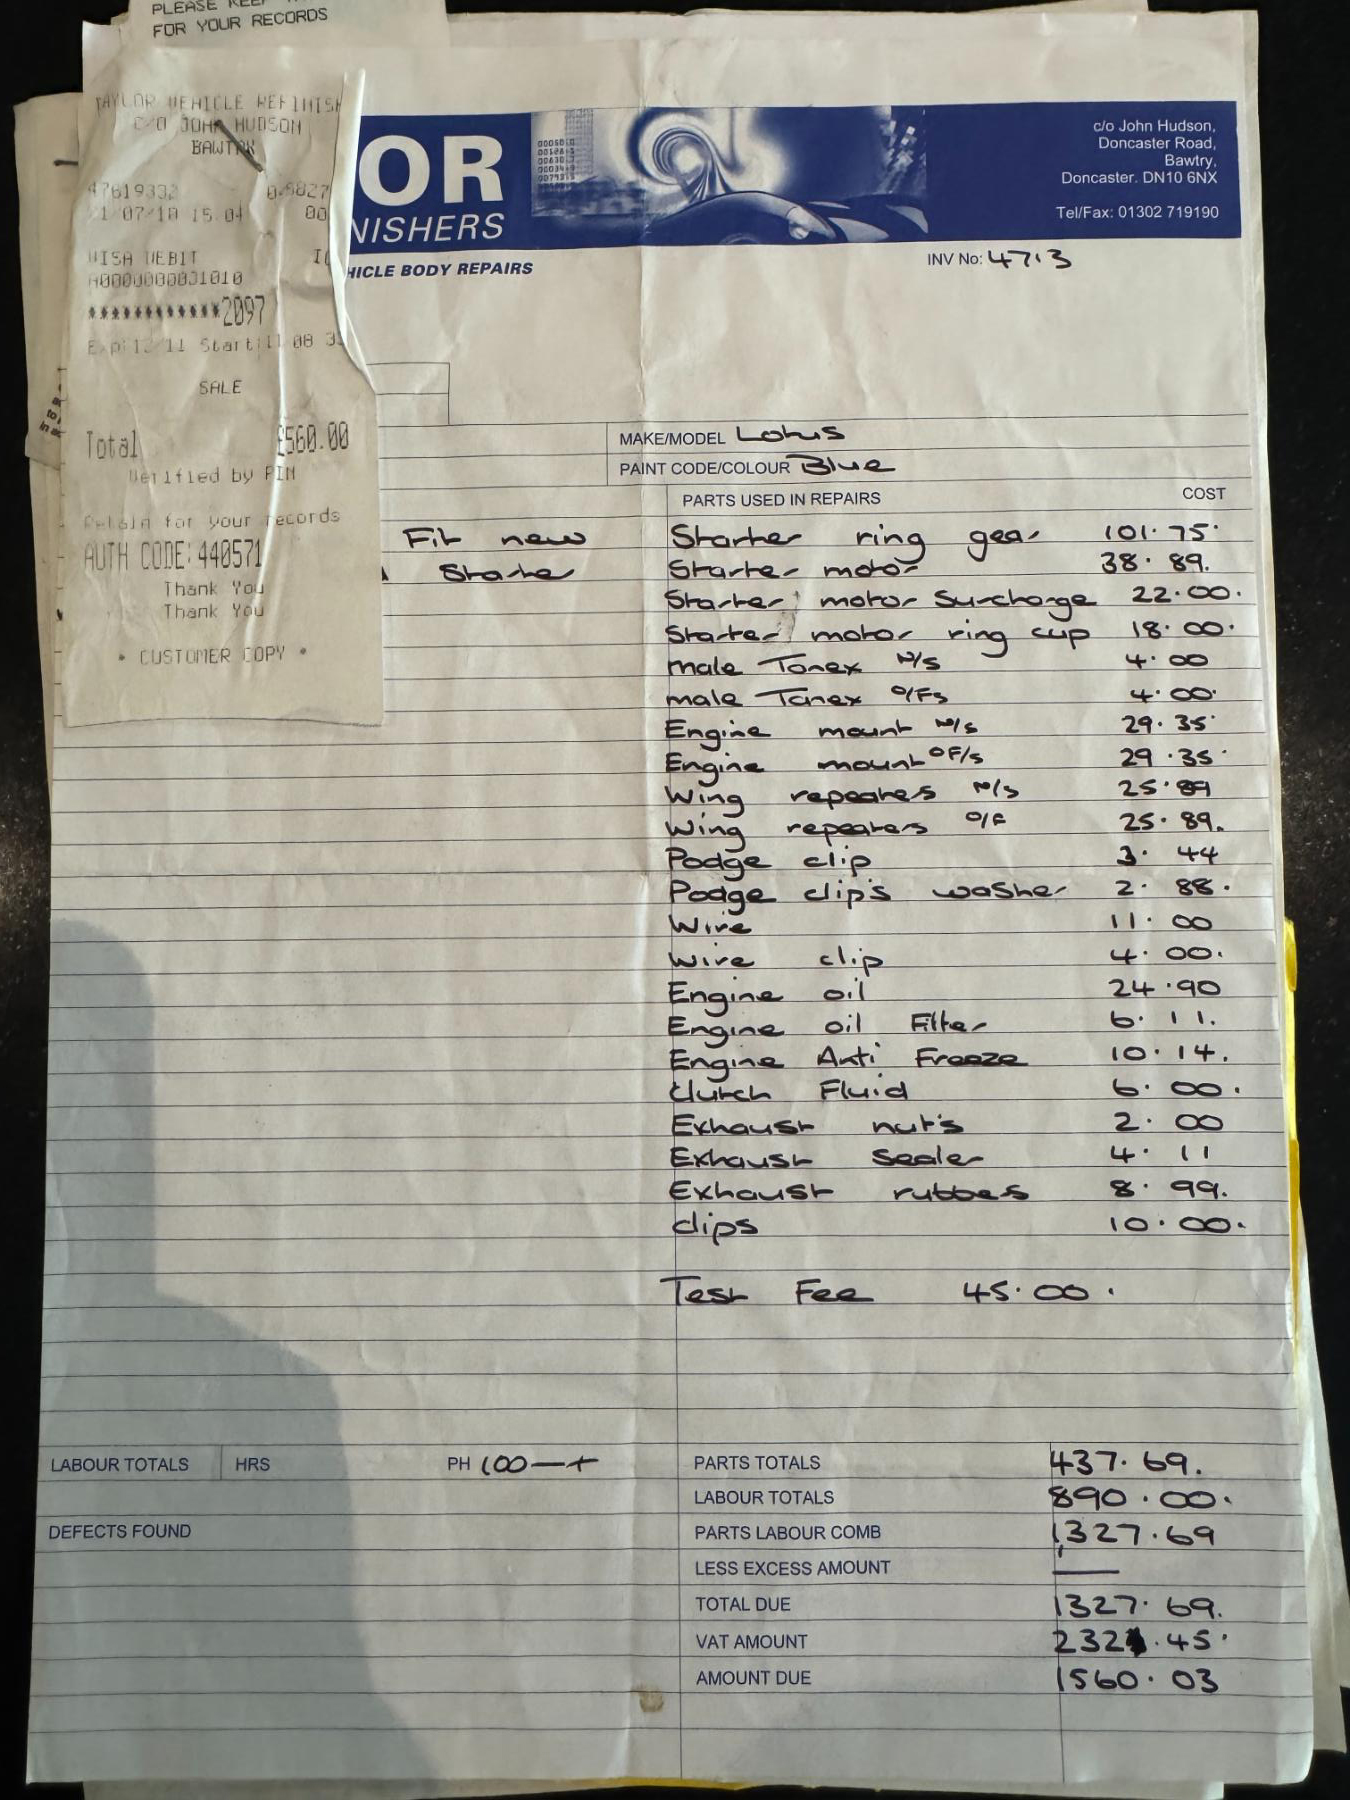 PLEASE KEEP
FOR YOUR RECORDS
TAYLOR VEHICLE REFINISH
C/O JOHN HUDSON
BAWTRY
47619332
1/07/10 15.04
VISA DEBIT
A0000000031010
************2097
Exp:12/11 Start:11 08
SALE
Total £560.00
Verified by PIN
Retain for your records
AUTH CODE:440571
Thank You
Thank You
* CUSTOMER COPY *
OR
NISHERS
HICLE BODY REPAIRS
c/o John Hudson,
Doncaster Road,
Bawtry,
Doncaster. DN10 6NX
Tel/Fax: 01302 719190
INV No: 4713
MAKE/MODEL Lotus
PAINT CODE/COLOUR Blue
PARTS USED IN REPAIRS COST
Fit new
Starter
Starter ring gear 101.75
Starter motor 38.89.
Starter motor Surcharge 22.00.
Starter motor ring cup 18.00.
male Tonex N/S 4.00
male Tonex O/Fs 4.00
Engine mount N/S 29.35
Engine mount OF/s 29.35
Wing repeaters N/s 25.89
Wing repeaters O/F 25.89.
Podge clip 3.44
Podge clip's washer 2.88.
Wire 11.00
Wire clip 4.00.
Engine oil 24.90
Engine oil Filter 6.11.
Engine Anti Freeze 10.14.
Clutch Fluid 6.00.
Exhaust nut's 2.00
Exhaust sealer 4.11
Exhaust rubbes 8.99.
clips 10.00.
Test Fee 45.00.
LABOUR TOTALS HRS PH 100—+
DEFECTS FOUND
PARTS TOTALS 437.69.
LABOUR TOTALS 890.00.
PARTS LABOUR COMB 1,327.69
LESS EXCESS AMOUNT —
TOTAL DUE 1327.69.
VAT AMOUNT 232.45
AMOUNT DUE 1560.03